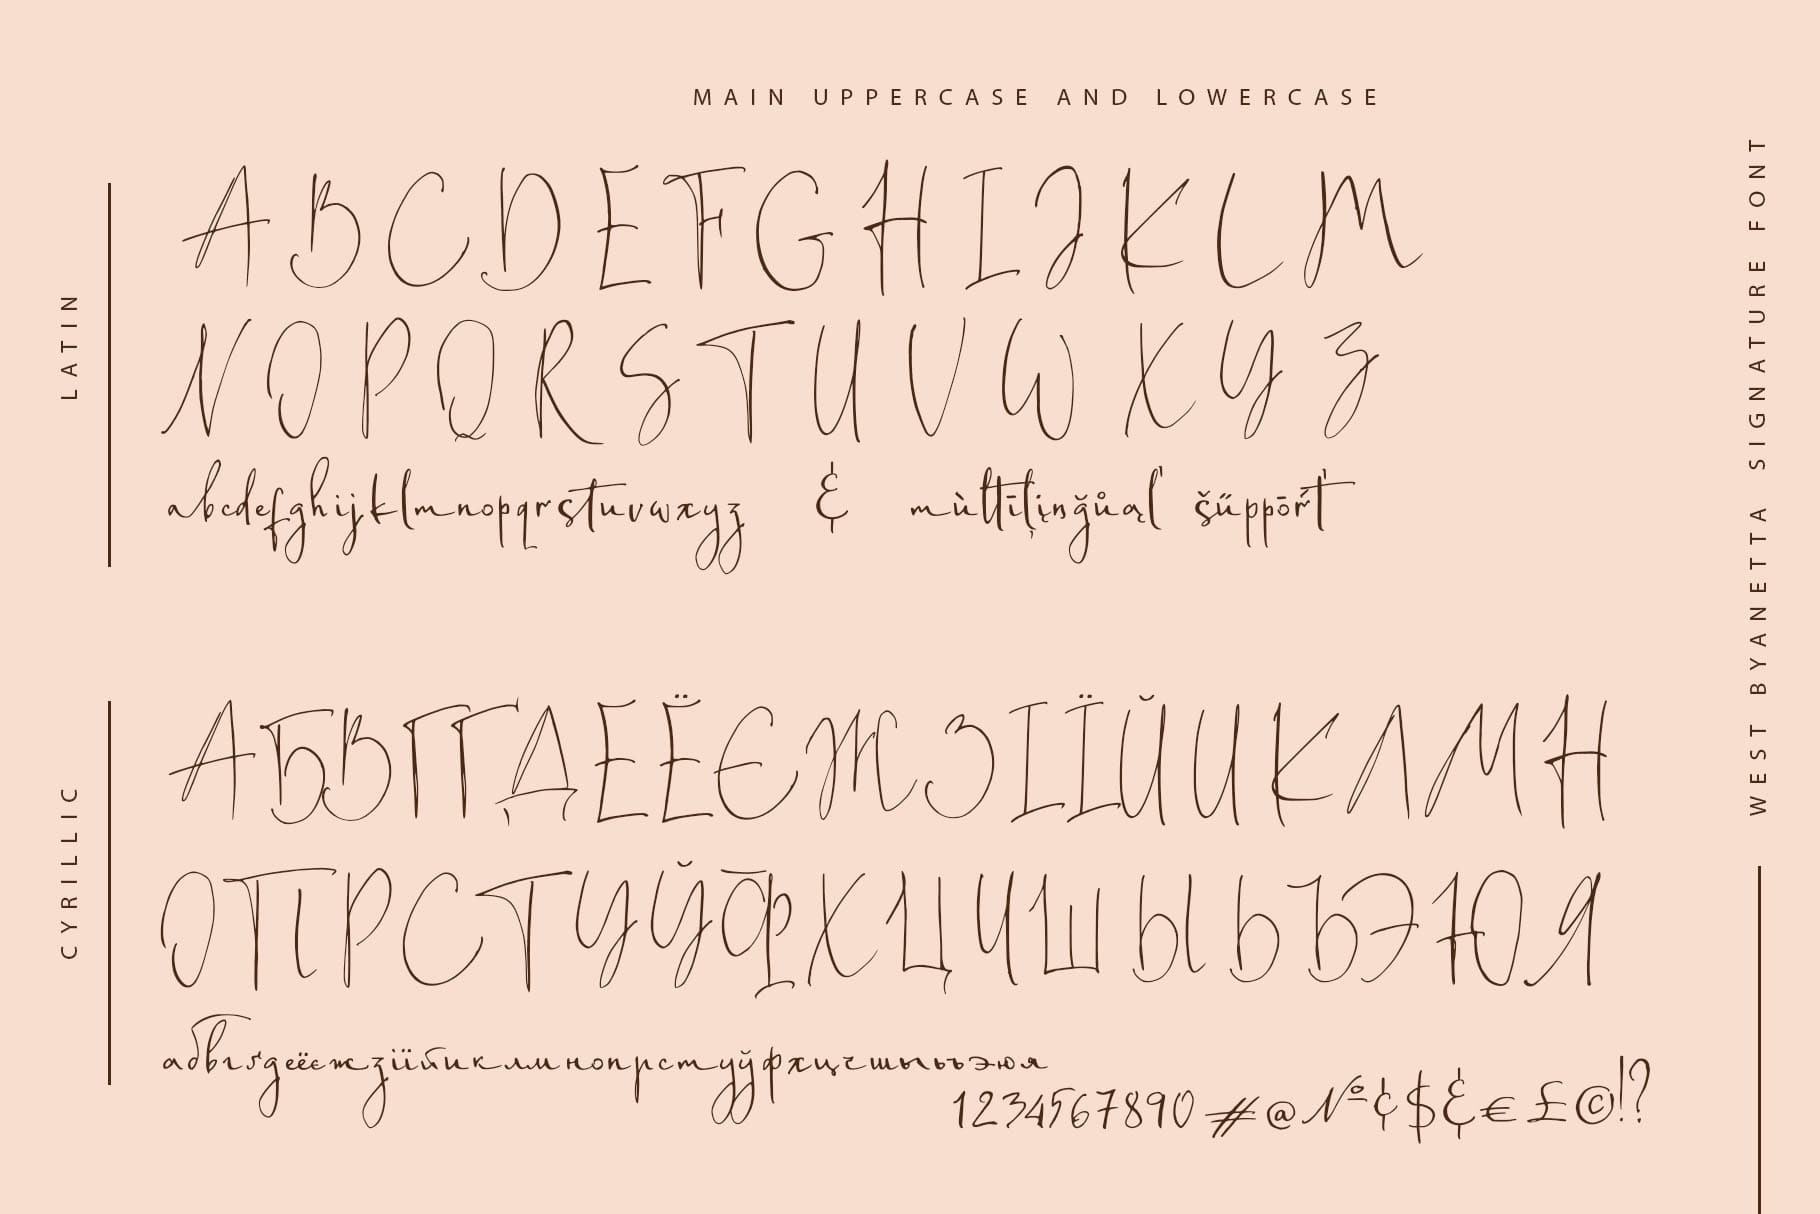 MAIN UPPERCASE AND LOWERCASE
LATIN
ABCDEFGHIJKLM
NOPQRSTUVWXYZ
abcdefghijklmnopqrstuvwxyz & mùltīļįňğůąĺ šűppōřt
CYRILLIC
АБВГҐДЕЁЄЖЗІЇЙИКЛМН
ОПРСТУЎФХЦЧШЫЬЪЭЮЯ
абвгґдеёєжзіїйиклмнопрстуўфхцчшыьъэюя
1234567890 # @ № ¢ $ & € £ © ! ?
WEST BYANETTA SIGNATURE FONT